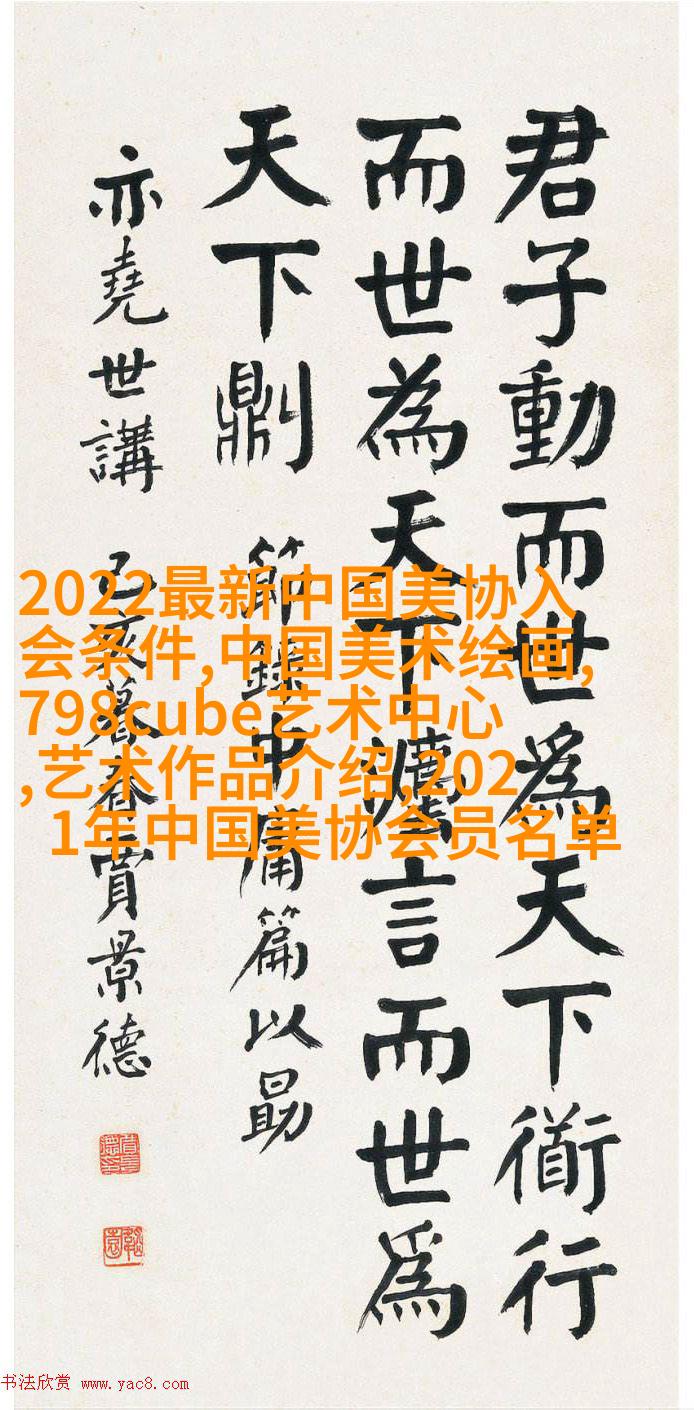 君子動而世為天下衜行
而世為天下灋言而世為
天下𠟭 節錄中庸篇以勗
亦堯世講 己亥暮春 賈景德
2022最新中国美协入
会条件,中国美术绘画,
798cube艺术中心
,艺术作品介绍,202
1年中国美协会员名单
书法欣赏 www.yac8.com